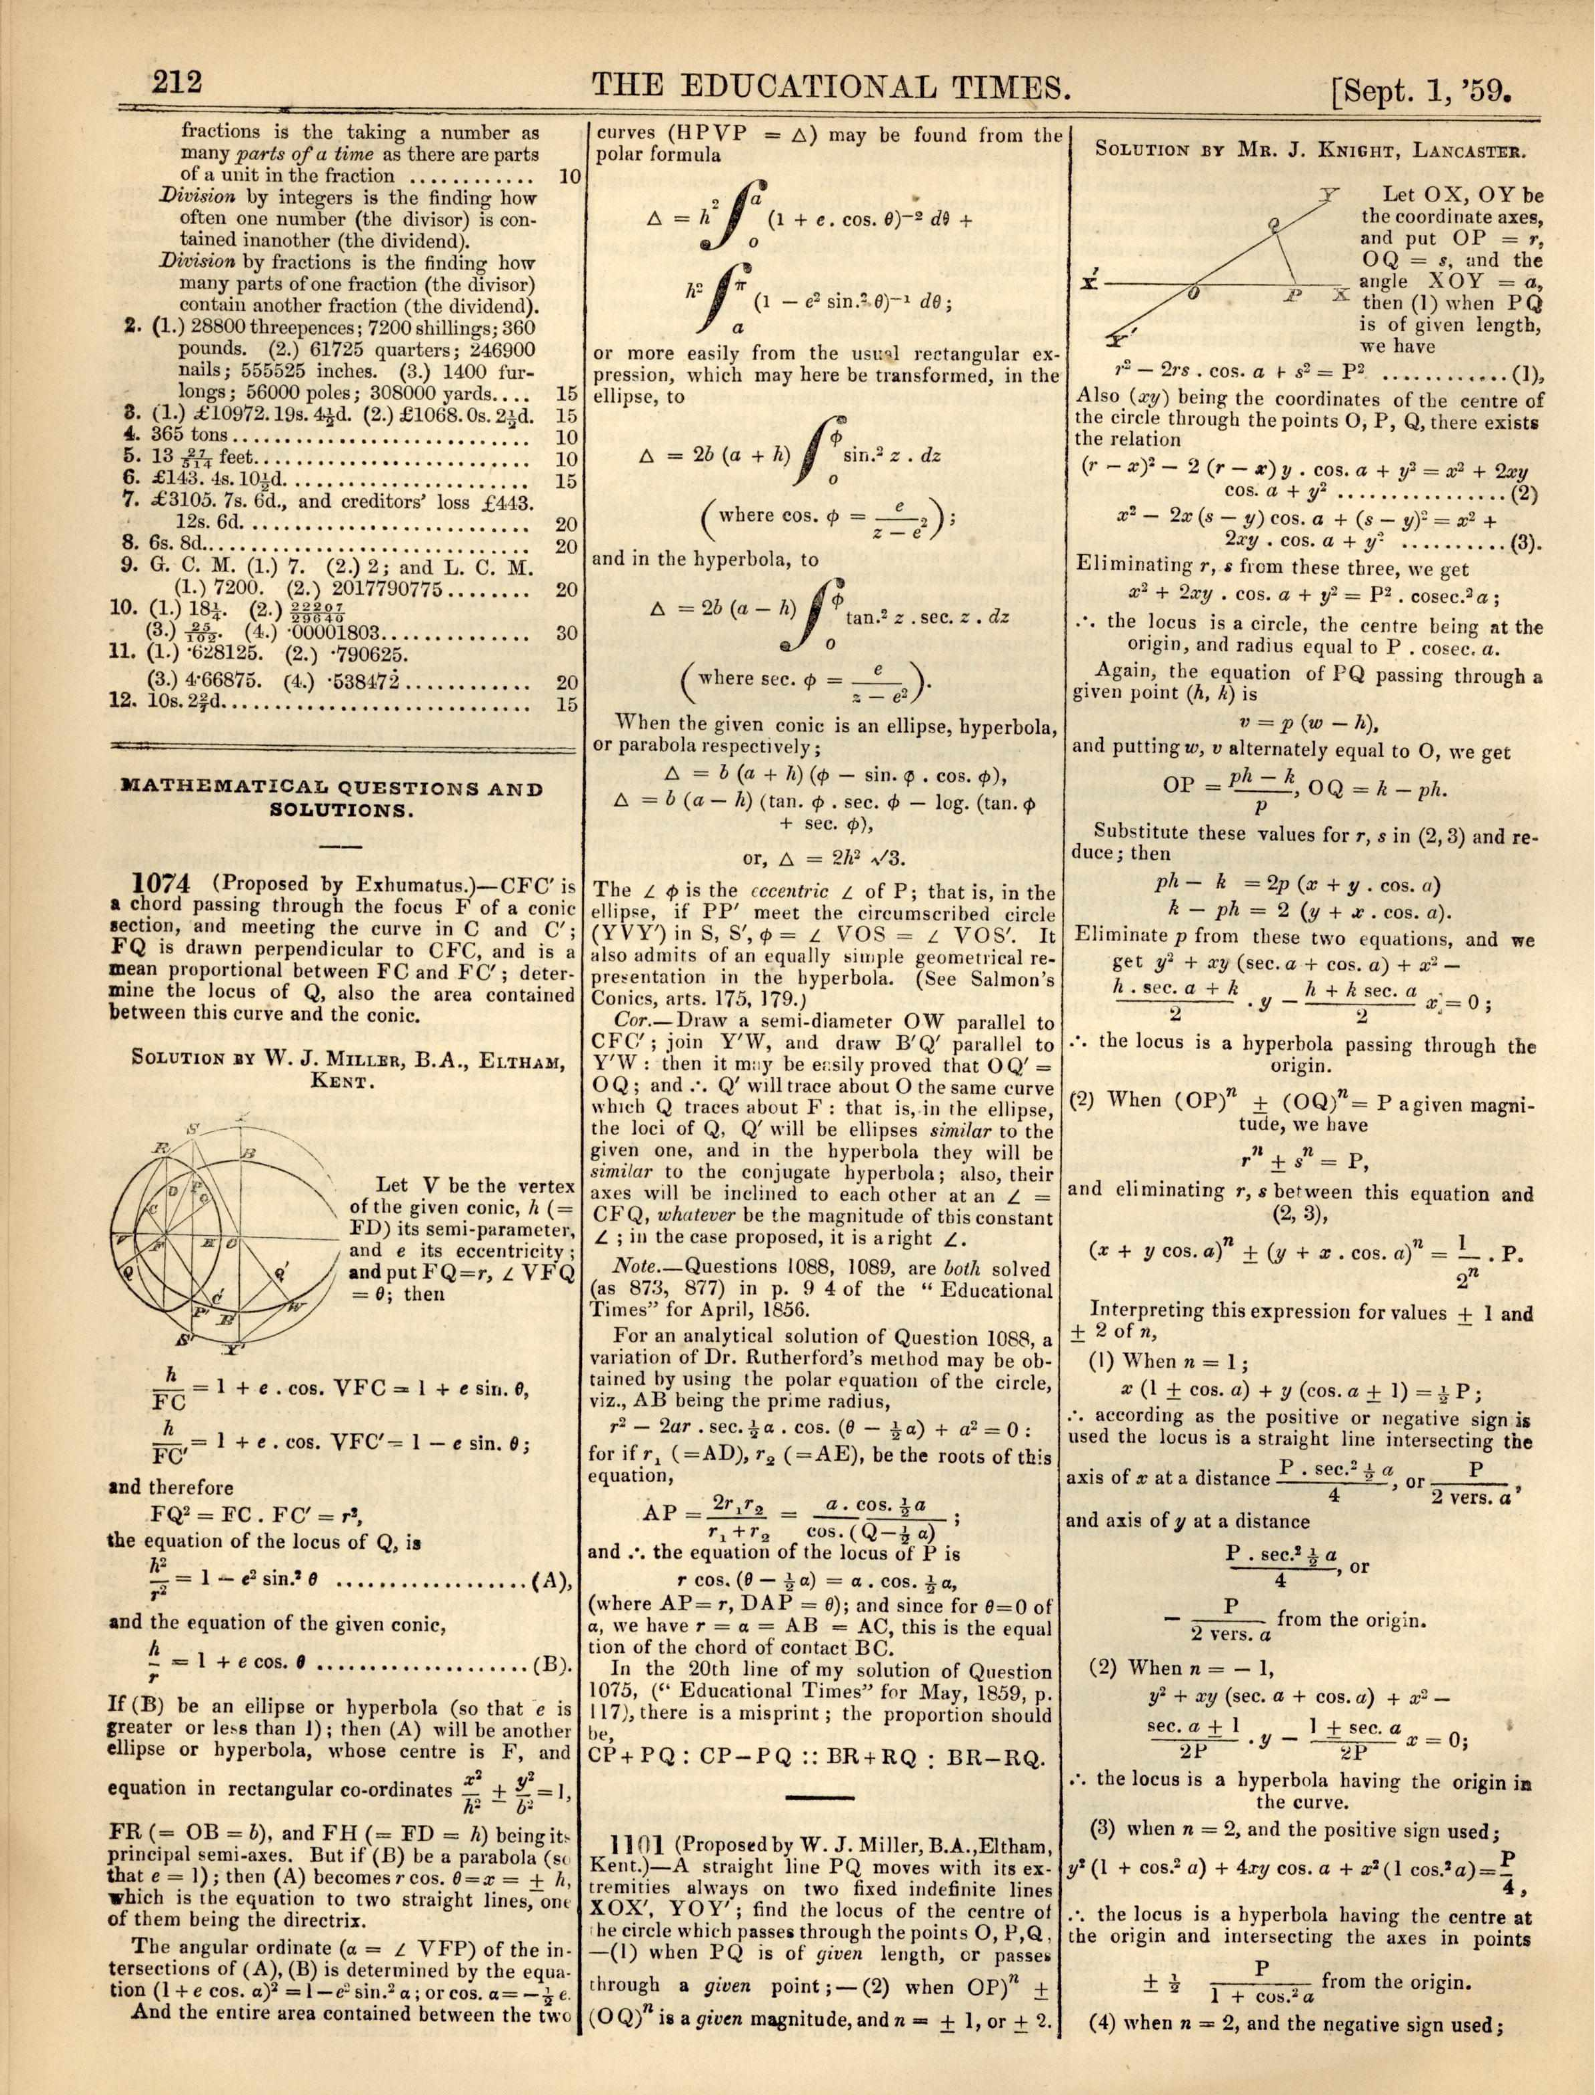 212
THE EDUCATIONAL TIMES.
[Sept. 1, '59.
fractions is the taking a number as
many parts of a time as there are parts
of a unit in the fraction ............ 10
Division by integers is the finding how
often one number (the divisor) is con-
tained inanother (the dividend).
Division by fractions is the finding how
many parts of one fraction (the divisor)
contain another fraction (the dividend).
2. (1.) 28800 threepences; 7200 shillings; 360
pounds. (2.) 61725 quarters; 246900
nails; 555525 inches. (3.) 1400 fur-
longs; 56000 poles; 308000 yards.... 15
3. (1.) £10972. 19s. 4½d. (2.) £1068. 0s. 2½d. 15
4. 365 tons ............................ 10
5. 13 27/514 feet............................ 10
6. £143. 4s. 10½d. ........................ 15
7. £3105. 7s. 6d., and creditors' loss £443.
12s. 6d. ............................ 20
8. 6s. 8d................................ 20
9. G. C. M. (1.) 7. (2.) 2; and L. C. M.
(1.) 7200. (2.) 2017790775........ 20
10. (1.) 18¼. (2.) 22207/29640
(3.) 25/102. (4.) ·00001803.............. 30
11. (1.) ·628125. (2.) ·790625.
(3.) 4·66875. (4.) ·538472 ............ 20
12. 10s. 2⅔d. ............................ 15
MATHEMATICAL QUESTIONS AND
SOLUTIONS.
1074 (Proposed by Exhumatus.)—CFC' is
a chord passing through the focus F of a conic
section, and meeting the curve in C and C';
FQ is drawn perpendicular to CFC, and is a
mean proportional between FC and FC'; deter-
mine the locus of Q, also the area contained
between this curve and the conic.
SOLUTION BY W. J. MILLER, B.A., ELTHAM,
KENT.
Let V be the vertex
of the given conic, h (=
FD) its semi-parameter,
and e its eccentricity;
and put FQ=r, ∠ VFQ
= θ; then
h/FC = 1 + e . cos. VFC = 1 + e sin. θ,
h/FC' = 1 + e . cos. VFC' = 1 − e sin. θ;
and therefore
FQ² = FC . FC' = r²,
the equation of the locus of Q, is
h²/r² = 1 − e² sin.² θ ..................(A),
and the equation of the given conic,
h/r = 1 + e cos. θ ....................(B).
If (B) be an ellipse or hyperbola (so that e is
greater or less than 1); then (A) will be another
ellipse or hyperbola, whose centre is F, and
equation in rectangular co-ordinates x²/h² ± y²/b² = 1,
FR (= OB = b), and FH (= FD = h) being its
principal semi-axes. But if (B) be a parabola (so
that e = 1); then (A) becomes r cos. θ=x = ± h,
which is the equation to two straight lines, one
of them being the directrix.
The angular ordinate (α = ∠ VFP) of the in-
tersections of (A), (B) is determined by the equa-
tion (1 + e cos. α)² = 1 − e² sin.² α; or cos. α = − ½ e.
And the entire area contained between the two
curves (HPVP = △) may be found from the
polar formula
△ = h² ∫ₒᵃ (1 + e . cos. θ)⁻² dθ +
h² ∫ₐ^π (1 − e² sin.² θ)⁻¹ dθ;
or more easily from the usual rectangular ex-
pression, which may here be transformed, in the
ellipse, to
△ = 2b (a + h) ∫ₒ^φ sin.² z . dz
(where cos. φ = e/(z − e²));
and in the hyperbola, to
△ = 2b (a − h) ∫ₒ^φ tan.² z . sec. z . dz
(where sec. φ = e/(z − e²)).
When the given conic is an ellipse, hyperbola,
or parabola respectively;
△ = b (a + h) (φ − sin. φ . cos. φ),
△ = b (a − h) (tan. φ . sec. φ − log. (tan. φ
+ sec. φ),
or, △ = 2h² √3.
The ∠ φ is the eccentric ∠ of P; that is, in the
ellipse, if PP' meet the circumscribed circle
(YVY') in S, S', φ = ∠ VOS = ∠ VOS'. It
also admits of an equally simple geometrical re-
presentation in the hyperbola. (See Salmon's
Conics, arts. 175, 179.)
Cor.—Draw a semi-diameter OW parallel to
CFC'; join Y'W, and draw B'Q' parallel to
Y'W: then it may be easily proved that OQ' =
OQ; and ∴ Q' will trace about O the same curve
which Q traces about F: that is, in the ellipse,
the loci of Q, Q' will be ellipses similar to the
given one, and in the hyperbola they will be
similar to the conjugate hyperbola; also, their
axes will be inclined to each other at an ∠ =
CFQ, whatever be the magnitude of this constant
∠; in the case proposed, it is a right ∠.
Note.—Questions 1088, 1089, are both solved
(as 873, 877) in p. 9 4 of the "Educational
Times" for April, 1856.
For an analytical solution of Question 1088, a
variation of Dr. Rutherford's method may be ob-
tained by using the polar equation of the circle,
viz., AB being the prime radius,
r² − 2ar . sec. ½ α . cos. (θ − ½ α) + a² = 0:
for if r₁ (=AD), r₂ (=AE), be the roots of this
equation,
AP = 2r₁r₂/(r₁+r₂) = a . cos. ½ a/cos. (Q−½ a);
and ∴ the equation of the locus of P is
r cos. (θ − ½ α) = a . cos. ½ α,
(where AP= r, DAP = θ); and since for θ=0 of
α, we have r = a = AB = AC, this is the equal
tion of the chord of contact BC.
In the 20th line of my solution of Question
1075, ("Educational Times" for May, 1859, p.
117), there is a misprint; the proportion should
be,
CP+PQ : CP−PQ :: BR+RQ : BR−RQ.
1101 (Proposed by W. J. Miller, B.A., Eltham,
Kent.)—A straight line PQ moves with its ex-
tremities always on two fixed indefinite lines
XOX', YOY'; find the locus of the centre of
he circle which passes through the points O, P, Q,
—(1) when PQ is of given length, or passes
through a given point;—(2) when OP)ⁿ ±
(OQ)ⁿ is a given magnitude, and n = ± 1, or ± 2.
SOLUTION BY MR. J. KNIGHT, LANCASTER.
Let OX, OY be
the coordinate axes,
and put OP = r,
OQ = s, and the
angle XOY = a,
then (1) when PQ
is of given length,
we have
r² − 2rs . cos. a + s² = P² ............(1),
Also (xy) being the coordinates of the centre of
the circle through the points O, P, Q, there exists
the relation
(r − x)² − 2 (r − x) y . cos. a + y² = x² + 2xy
cos. a + y² ................(2)
x² − 2x (s − y) cos. a + (s − y)² = x² +
2xy . cos. a + y² ..........(3).
Eliminating r, s from these three, we get
x² + 2xy . cos. a + y² = P² . cosec.² a;
∴ the locus is a circle, the centre being at the
origin, and radius equal to P . cosec. a.
Again, the equation of PQ passing through a
given point (h, k) is
v = p (w − h),
and putting w, v alternately equal to O, we get
OP = (ph − k)/p, OQ = k − ph.
Substitute these values for r, s in (2, 3) and re-
duce; then
ph − k = 2p (x + y . cos. a)
k − ph = 2 (y + x . cos. a).
Eliminate p from these two equations, and we
get y² + xy (sec. a + cos. a) + x² −
(h . sec. a + k)/2 . y − (h + k sec. a)/2 x = 0;
∴ the locus is a hyperbola passing through the
origin.
(2) When (OP)ⁿ ± (OQ)ⁿ = P a given magni-
tude, we have
rⁿ ± sⁿ = P,
and eliminating r, s between this equation and
(2, 3),
(x + y cos. a)ⁿ ± (y + x . cos. a)ⁿ = 1/2ⁿ . P.
Interpreting this expression for values ± 1 and
± 2 of n,
(1) When n = 1;
x (1 ± cos. a) + y (cos. a ± 1) = ½ P;
∴ according as the positive or negative sign is
used the locus is a straight line intersecting the
axis of x at a distance P . sec.² ½ a/4, or P/2 vers. a,
and axis of y at a distance
P . sec.² ½ a/4, or
− P/2 vers. a from the origin.
(2) When n = − 1,
y² + xy (sec. a + cos. a) + x² −
(sec. a ± 1)/2P . y − (1 ± sec. a)/2P x = 0;
∴ the locus is a hyperbola having the origin in
the curve.
(3) when n = 2, and the positive sign used;
y² (1 + cos.² a) + 4xy cos. a + x² (1 cos.² a) = P/4,
∴ the locus is a hyperbola having the centre at
the origin and intersecting the axes in points
± ½ P/(1 + cos.² a) from the origin.
(4) when n = 2, and the negative sign used;